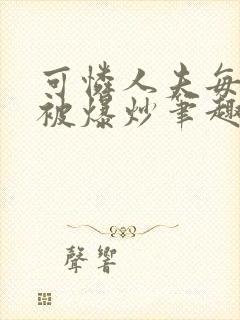 可憐人夫每
被爆炒筆趣
聲響